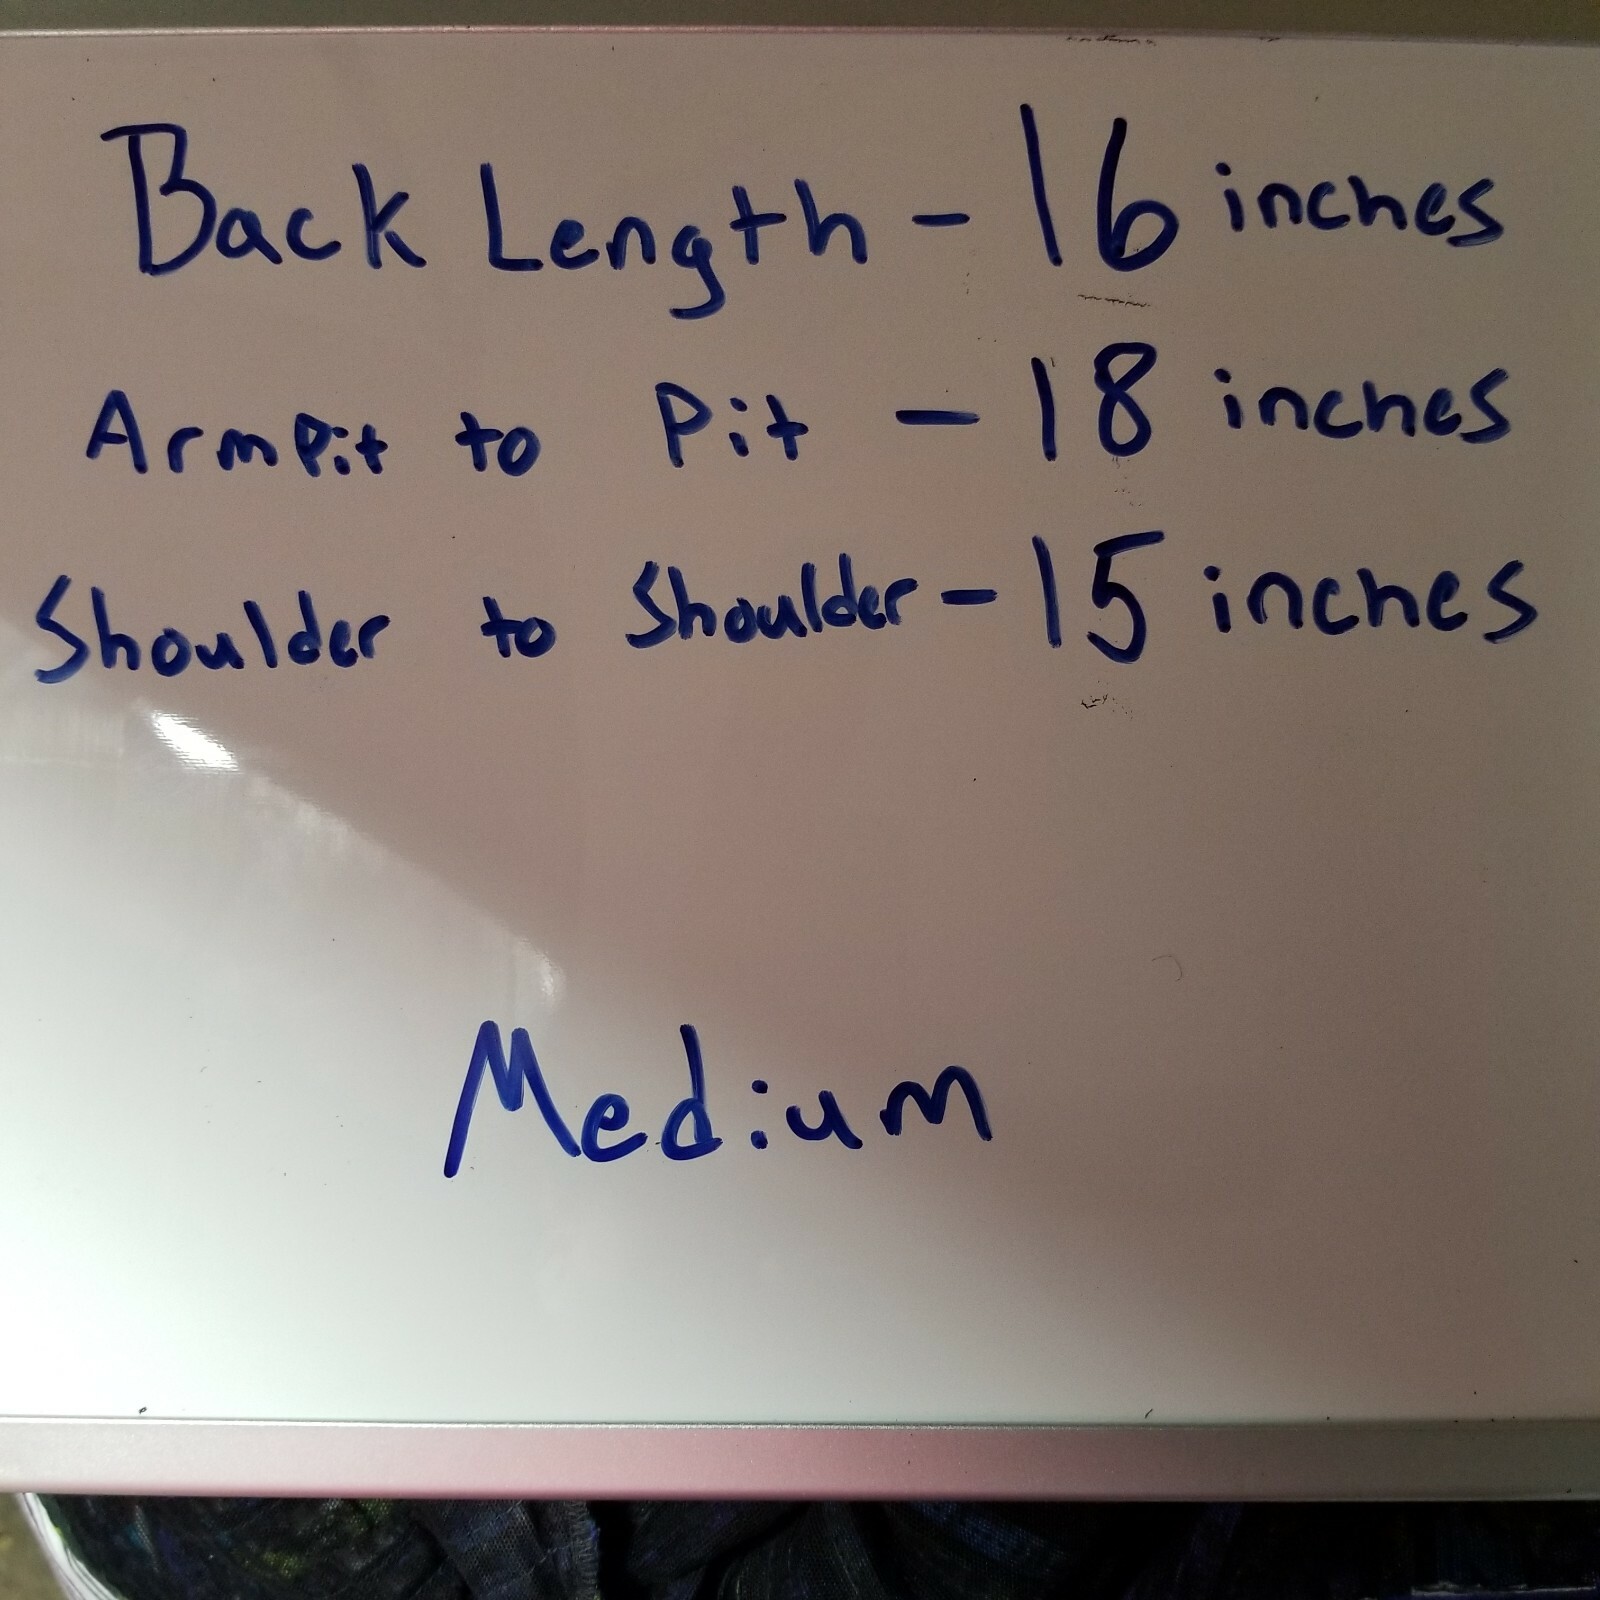 Back Length - 16 inches
Armpit to Pit - 18 inches
Shoulder to Shoulder - 15 inches
Medium